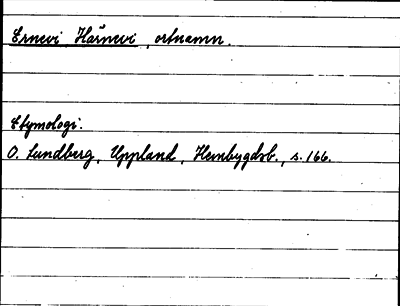 Ernevi Härnevi, ortnamn.
Etymologi.
O. Lundberg, Uppland, Hembygdsb., s. 166.